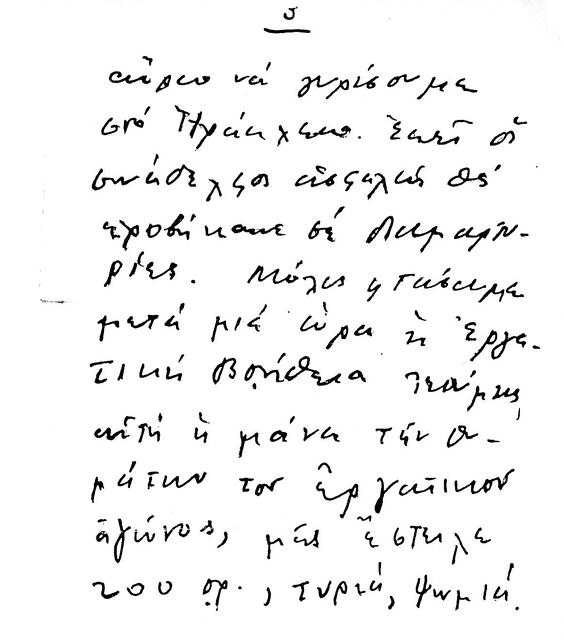 5
αὔριο νά γυρίσουμε
στό Ἡράκλειο. Ἐκεῖ οἱ
συνάδελφοι ἀσφαλῶς θά
προβήκανε σέ διαμαρτυ-
ρίες. Μόλις φτάσαμε
μετά μιά ὥρα ἡ Ἐργα-
τική Βοήθεια
αὐτή ἡ μάνα τῶν θυ-
μάτων τοῦ ἐργατικοῦ
ἀγώνος, μᾶς ἔστειλε
200 δρ., τυριά, ψωμιά.